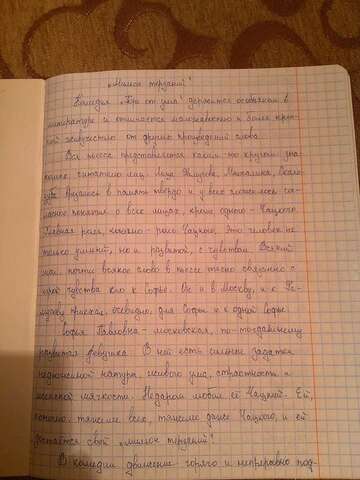 „Мильон терзаний"
Комедия „Горе от ума" держится особняком в
литературе и отличается моложавостью и более креп-
кой живучестью от других произведений слова.
Вся пьеса представляется каким-то кругом зна-
комых читателю лиц. Лица Фамусова, Молчалина, Скало-
зуба врезались в память твердо и у всего сложилось со-
гласное понятие о всех лицах, кроме одного - Чацкого.
Главная роль, конечно - роль Чацкого. Это человек не
только умный, но и развитой, с чувством. Всякий
шаг, почти всякое слово в пьесе тесно связано с
игрой чувства его к Софье. Он и в Москву, и к Фа-
мусову приехал, очевидно, для Софьи и к одной Софье.
Софья Павловна - московская, по-тогдашнему
развитая девушка. В ней есть сильные задатки
недюжинной натуры, живого ума, страстности и
женской мягкости. Недаром любил её Чацкий. Ей,
конечно, тяжелее всех, тяжелее даже Чацкого, и ей
достаётся свой „мильон терзаний".
В комедии движение горячо и непрерывно под-